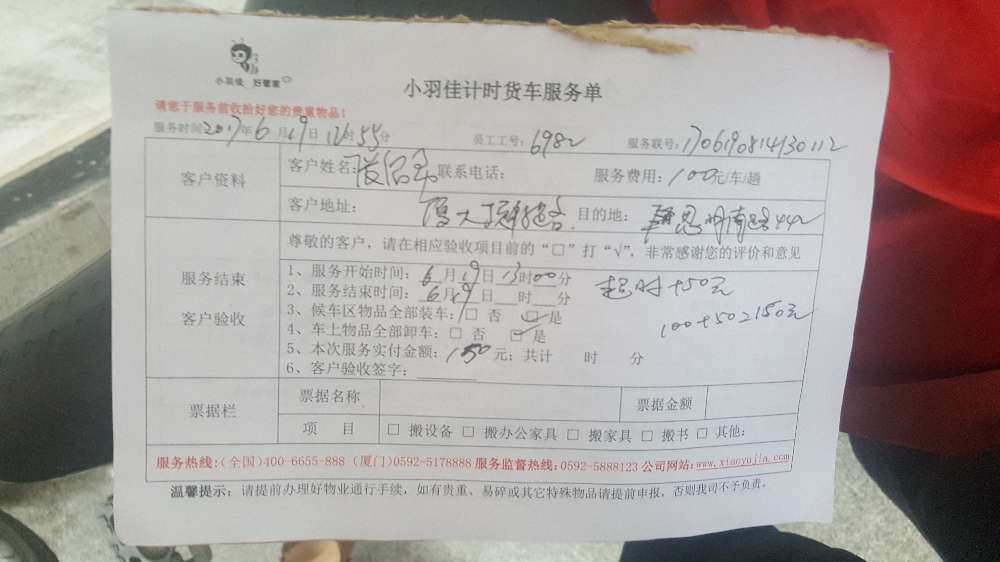 小羽佳 好管家
小羽佳计时货车服务单
请您于服务前收拾好您的贵重物品！
服务时间2017年6月19日12时55分 员工工号：6982 服务联号：170619081430112
客户资料
客户姓名： 联系电话： 服务费用：100元/车/趟
客户地址：厦大 目的地：思明南路442
服务结束
客户验收
尊敬的客户，请在相应验收项目前的“□”打“√”，非常感谢您的评价和意见
1、服务开始时间：6月19日13时00分 超时+50元
2、服务结束时间：6月19日__时__分
3、候车区物品全部装车：□ 否 ☑是 100+50=150元
4、车上物品全部卸车：□ 否 ☑是
5、本次服务实付金额：150元；共计 时 分
6、客户验收签字：
票据栏 票据名称 票据金额
项 目 □ 搬设备 □ 搬办公家具 □ 搬家具 □ 搬书 □ 其他:
服务热线:(全国)400-6655-888 (厦门)0592-5178888 服务监督热线:0592-5888123 公司网站:www.xiaoyujia.com
温馨提示：请提前办理好物业通行手续，如有贵重、易碎或其它特殊物品请提前申报，否则我司不予负责。